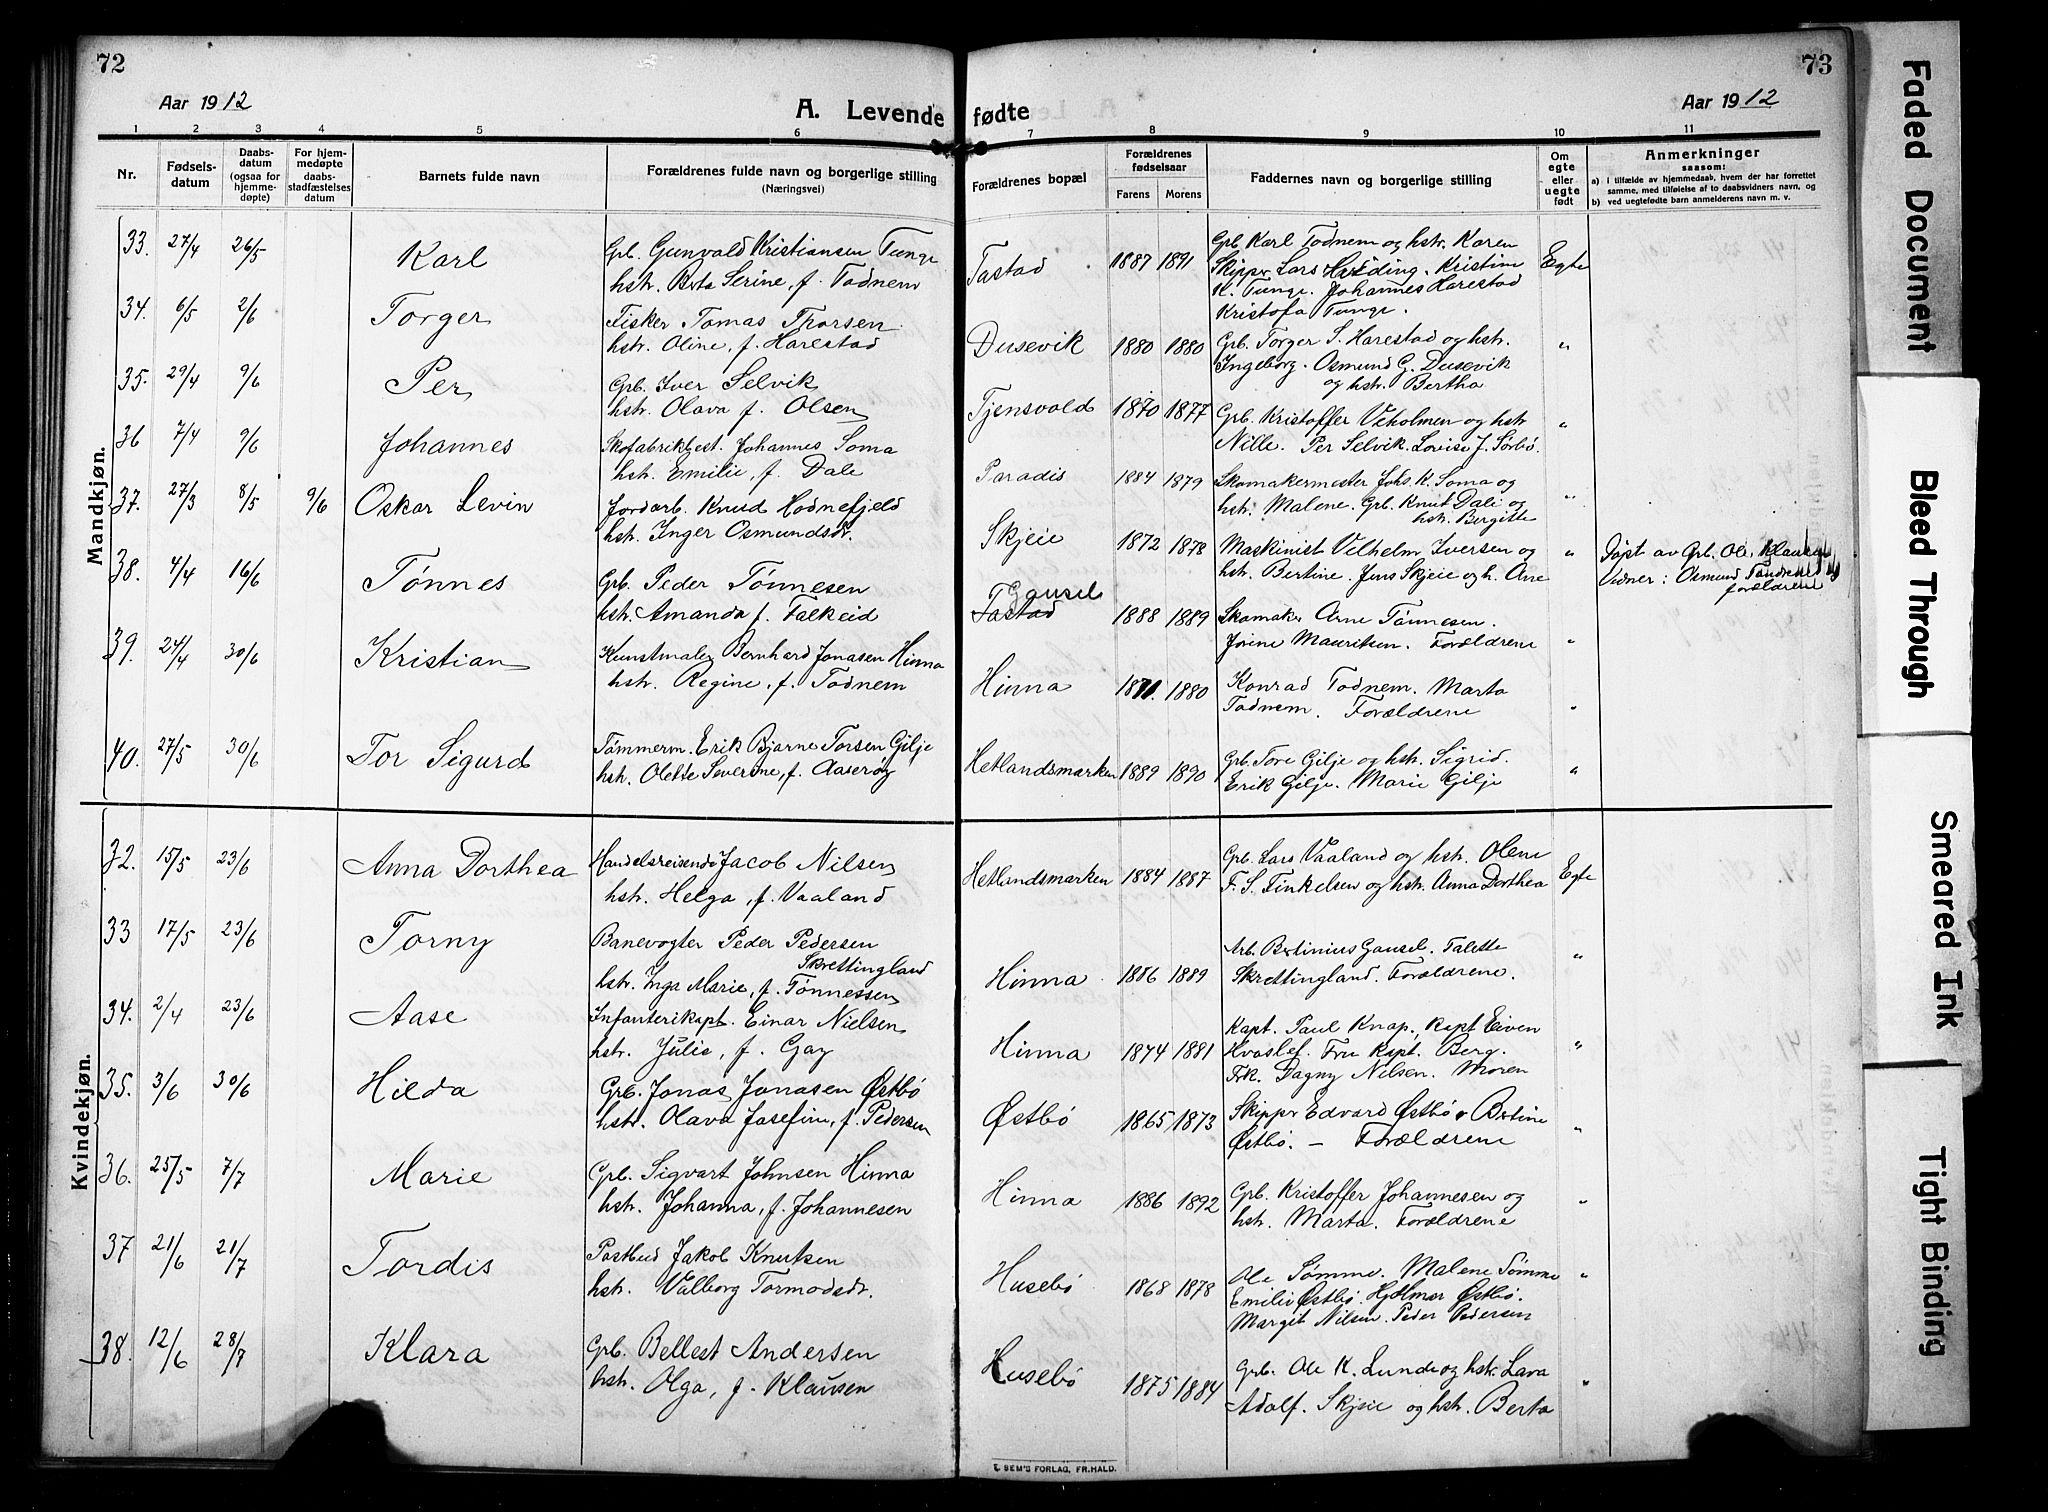 72
Aar 1912
A. Levende fødte
Aar 1912
73
1 2 3 4 5 6 7 8 9 10 11
Nr.
Fødsels-
datum
Daabs-
datum
(ogsaa for
hjemme-
døpte)
For hjem-
medøpte
daabs-
stadfæstelses
datum
Barnets fulde navn
Forældrenes fulde navn og borgerlige stilling
(Næringsvei)
Forældrenes bopæl
Forældrenes
fødselsaar
Farens Morens
Faddernes navn og borgerlige stilling
Om
egte
eller
uegte
født
Anmerkninger
saasom:
a) i tilfælde av hjemmedaab, hvem der har forrettet
samme, med tilføielse af to daabsvidners navn, og
b) ved uegtefødte barn anmelderens navn m. v.
Mandkjøn.
33. 27/4 26/5 Karl
Grb. Gunvald Kristiansen Tunge
hstr. Berta Serine, f. Todnem
Tastad 1887 1891
Grb. Karl Todnem og hstr. Karen
Skipper Lars Hariding. Kristine
K. Tunge. Johannes Harestad
Kristofa Tunge.
Egte
34. 6/5 2/6 Torger
Fisker Tomas Thorsen
hstr. Oline, f. Harestad
Dusevik 1880 1880
Grb. Torger S. Harestad og hstr.
Ingeborg. Osmund G. Dusevik
og hstr. Bertha
"
35. 29/4 9/6 Per
Grb. Iver Selvik
hstr. Olava f. Olsen
Tjensvold 1870 1877
Grb. Kristoffer Veholmen og hstr
Nille. Per Selvik. Lovise J. Sörbö.
"
36 7/4 9/6 Johannes
Skofabrikbest. Johannes Soma
hstr. Emilie, f. Dale
Paradis 1884 1879
Skomakermester Johs. K. Soma og
hstr. Malene. Grb. Knut Dale og
hstr. Bergitte
"
37. 27/3 8/5 9/6 Oskar Levin
Jordarb. Knud Hodnefjeld
hstr. Inger Osmundsdr.
Skjeie 1872 1878
Maskinist Vilhelm Iversen og
hstr. Bertine. Jens Skjeie og h. Ane
"
Døpt av Grb. Ole Klausen
Vidner: Osmund
forældrene
38. 4/4 16/6 Tönnes
Grb. Peder Tönnesen
hstr. Amanda f. Falkeid
Gausel
Tastad 1888 1889
Skomaker Arne Tönnesen.
Jorine Mauritsen. Forældrene
"
39. 24/4 30/6 Kristian
Kunstmaler Bernhard Jonasen Hinna
hstr. Regine, f. Todnem
Hinna 1871. 1880
Konrad Todnem. Marta
Todnem. Forældrene
"
40. 27/5 30/6 Tor Sigurd
Tømmerm. Erik Bjarne Torsen Gilje
hstr. Olette Severine, f. Aaseröy
Hetlandsmarken 1889 1890
Grb. Tore Gilje og hstr. Sigrid.
Erik Gilje. Marie Gilje
"
Kvindekjøn.
32. 15/5 23/6 Anna Dorthea
Handelsreisende Jacob Nilsen
hstr. Helga, f. Vaaland
Hetlandsmarken 1884 1887
Grb. Lars Vaaland og hstr. Olene
F. S. Finkelsen og hstr. Anna Dorthea
Egte
33 17/5 23/6 Torny
Banevogter Peder Pedersen
Skrettingland
hstr. Inga Marie, f. Tönnessen
Hinna 1886 1889
Arb. Bertinius Gausel. Talette
Skrettingland. Forældrene.
"
34. 2/4 23/6 Aase
Infanterikapt. Einar Nielsen
hstr. Julie, f. Gay
Hinna 1874 1881
Kapt. Paul Knap. Kapt Eiven
Kvaslef. Fru Kapt. Berg.
Frk. Dagny Nielsen. Moren
"
35. 3/6 30/6 Hilda
Grb. Jonas Jonasen Østbö
hstr. Olava Josefine, f. Pedersen
Østbö 1865 1873
Skipper Edvard Østbö. Bertine
Østbö. — Forældrene
"
36. 25/5 7/7 Marie
Grb. Sigvart Johnsen Hinna
hstr. Johanna, f. Johannesen
Hinna 1886 1892
Grb. Kristoffer Johannesen og
hstr. Marta. Forældrene
"
37 21/6 21/7 Tordis
Postbud Jakob Knutsen
hstr. Valborg Tormodsdr.
Husebö 1868 1878
Ole Sömme. Malene Sömme
Emilie Østbö. Hjalmar Østbö.
Margit Nilsen. Peder Pedersen
"
38. 12/6 28/7 Klara
Grb. Bellest Andersen
hstr. Olga, f. Klausen
Husebö 1875 1884
Grb. Ole K. Lunde og hstr. Lava
Adolf. Skjeie og hstr. Berta
"
E. SEM'S FORLAG, FR.HALD.
Faded Document
Bleed Through
Smeared Ink
Tight Binding